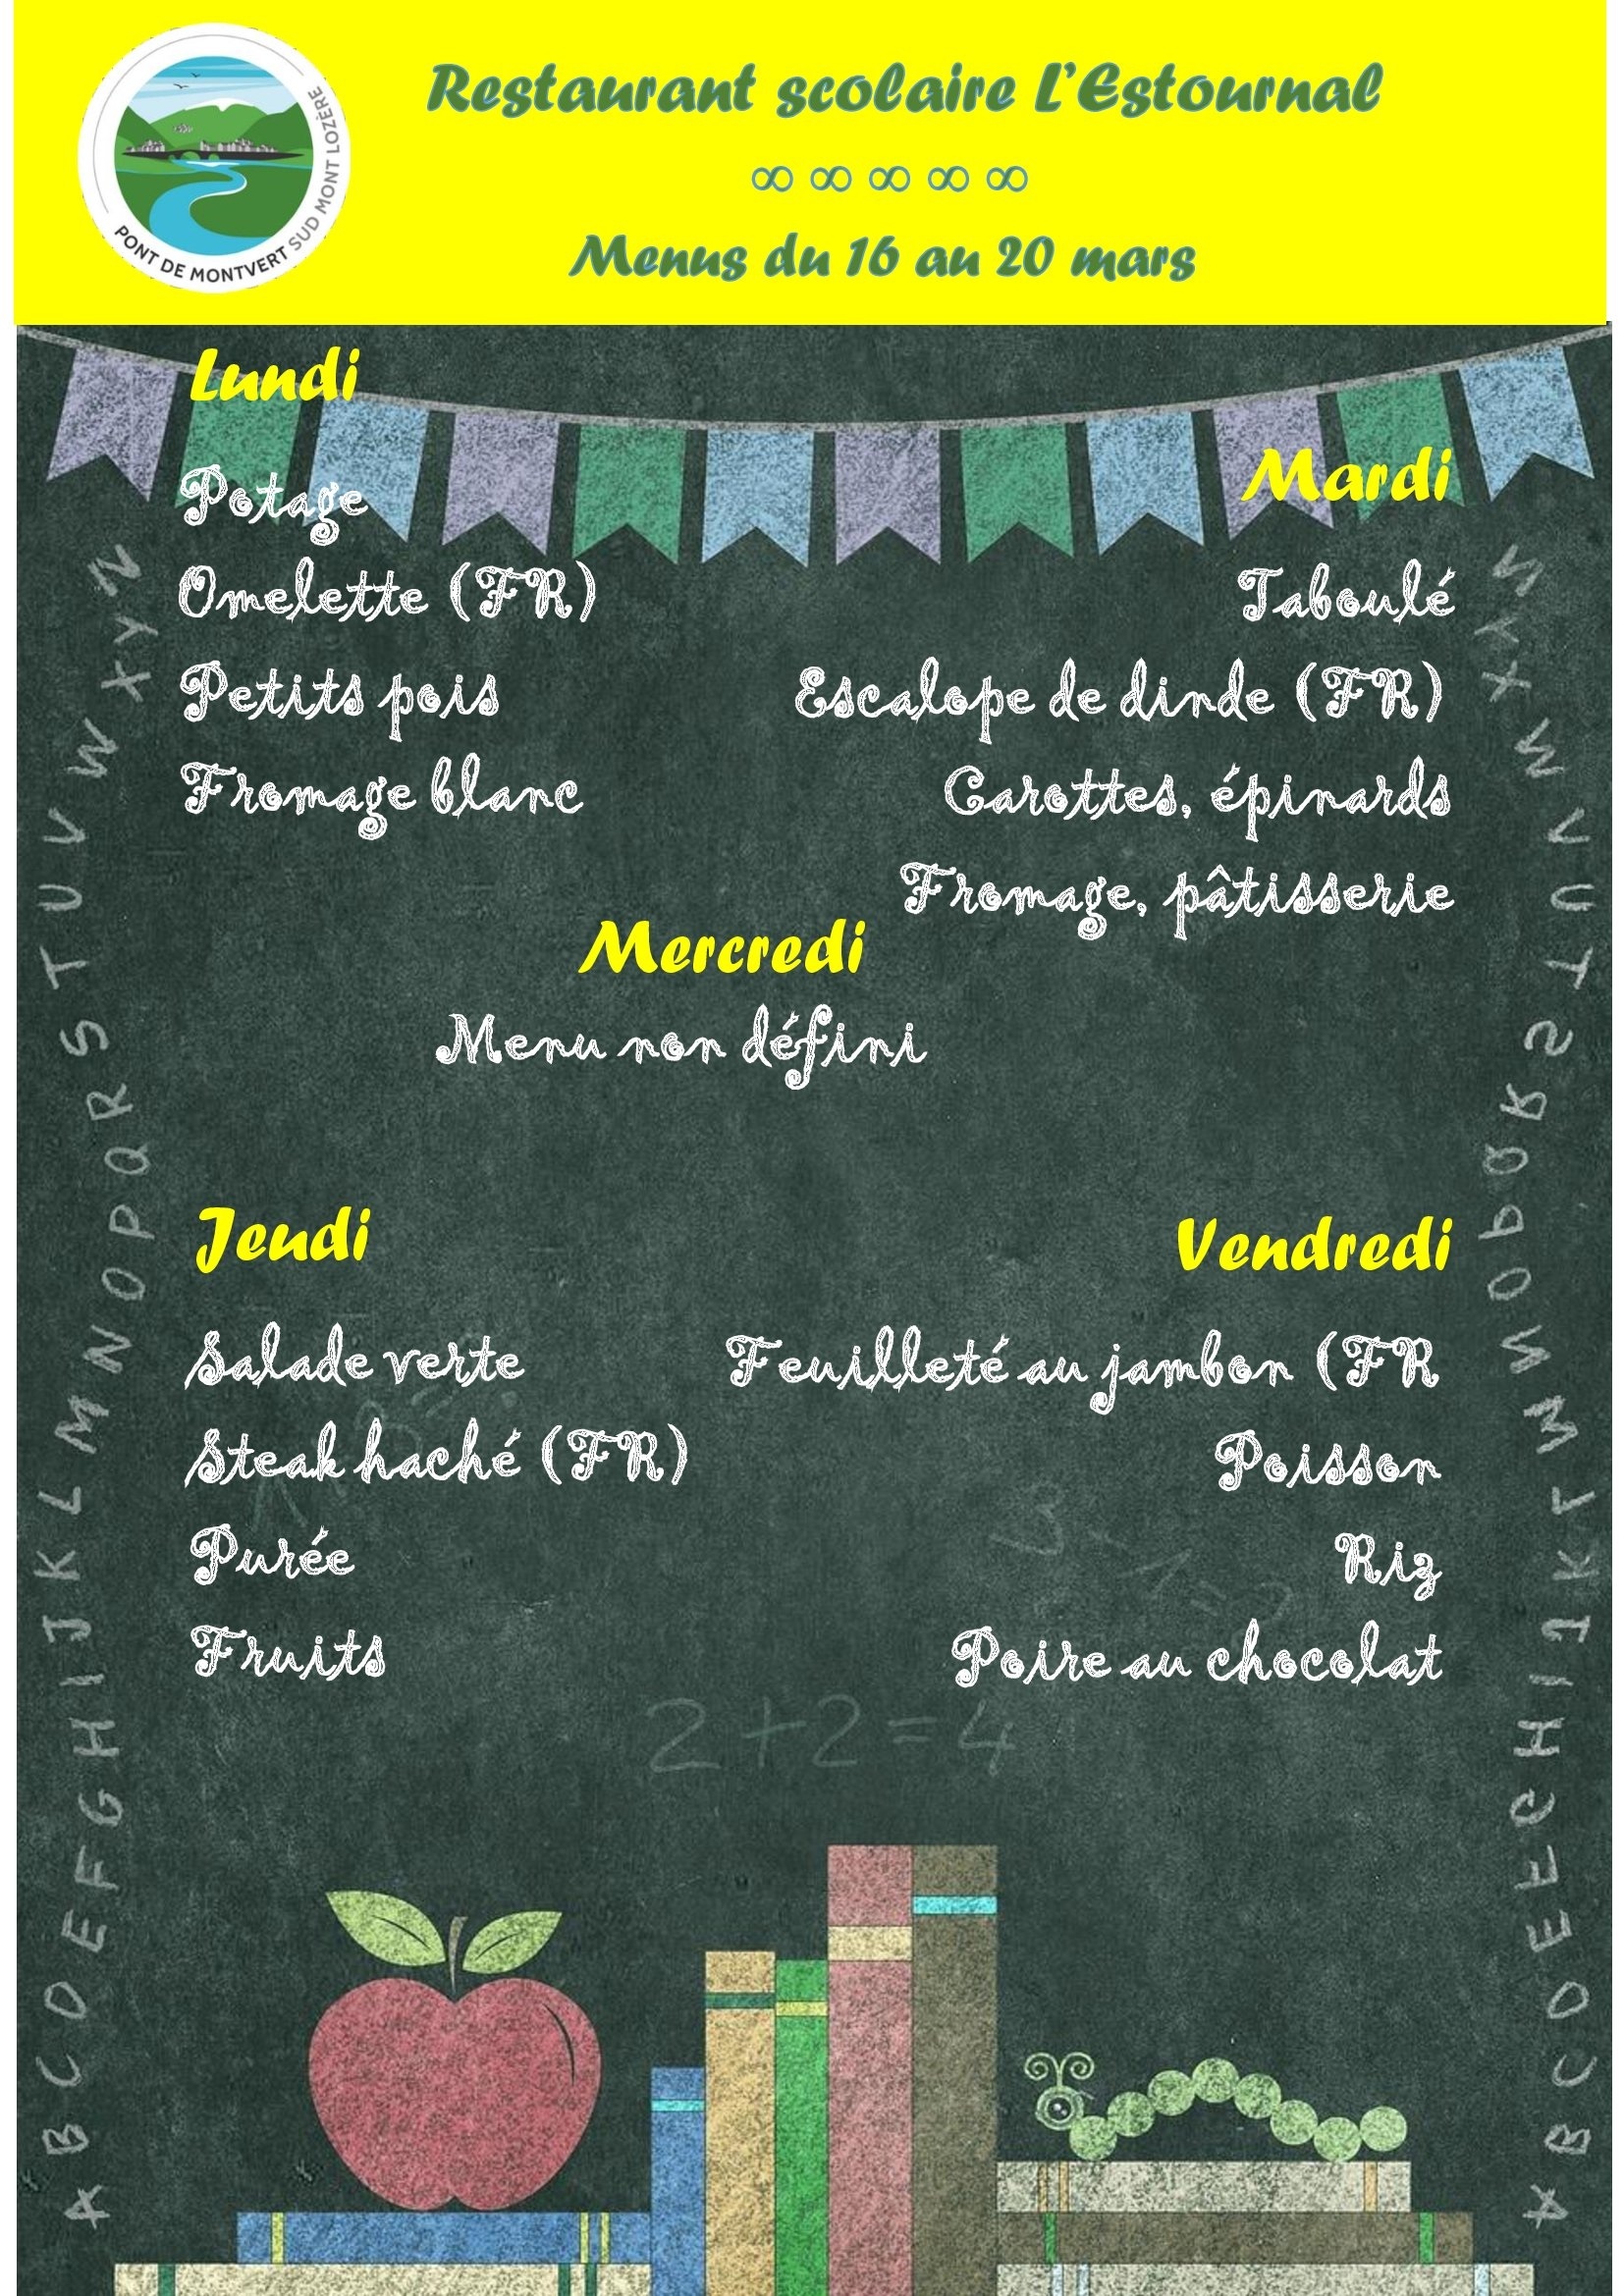 PONT DE MONTVERT SUD MONT LOZÈRE
Restaurant scolaire L'Estournal
∞ ∞ ∞ ∞ ∞
Menus du 16 au 20 mars
Lundi
Potage
Omelette (FR)
Petits pois
Fromage blanc
Mardi
Taboulé
Escalope de dinde (FR)
Carottes, épinards
Fromage, pâtisserie
Mercredi
Menu non défini
Jeudi
Salade verte
Steak haché (FR)
Purée
Fruits
Vendredi
Feuilleté au jambon (FR
Poisson
Riz
Poire au chocolat
2+2=4